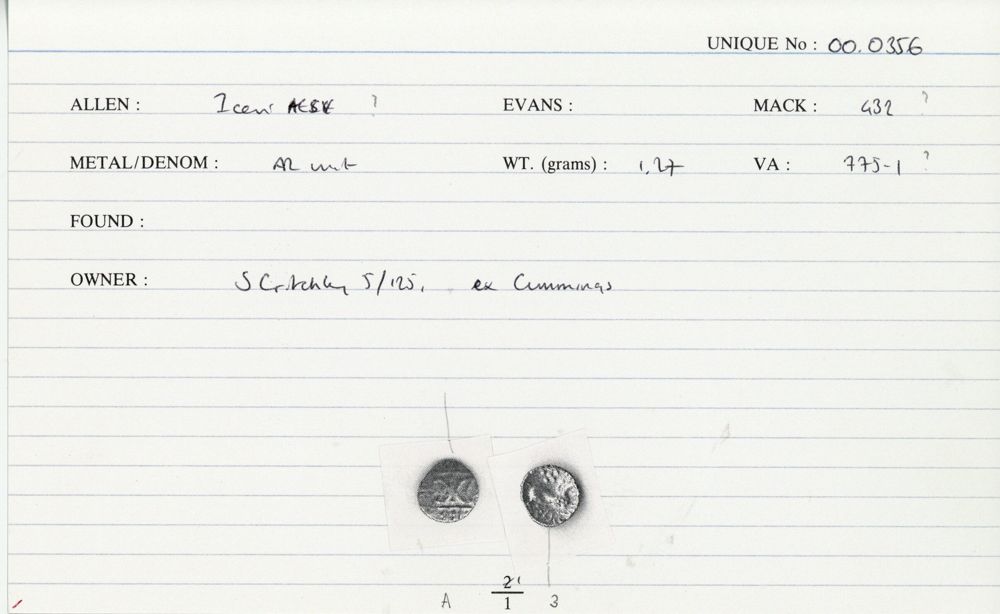 UNIQUE No : 00.0356
ALLEN : Iceni AESV ? EVANS : MACK : 432 ?
METAL/DENOM : AR unit WT. (grams) : 1.27 VA : 775-1 ?
FOUND :
OWNER : S Critchley 5/125, ex Cummings
A 2 1 3